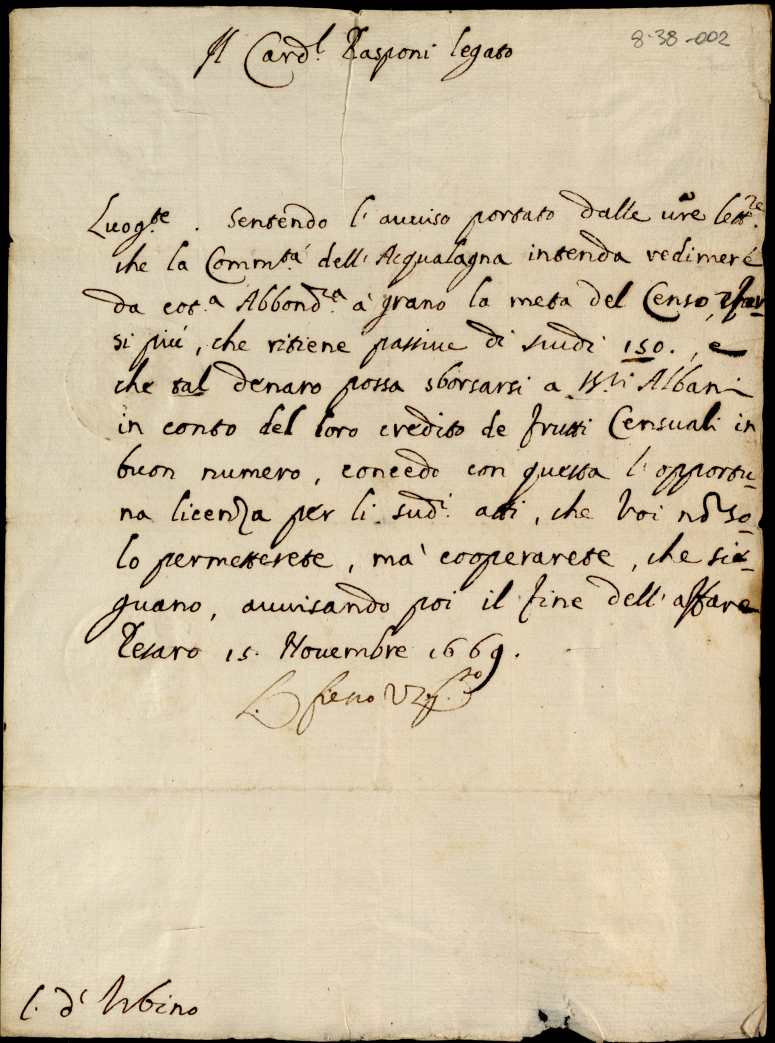 8-38-002
Il Card.l Rasponi legato
Luog.te . Sentendo l'auuiso portato dalle ure lett.re
che la Comm.tà dell'Acqualagna intenda redimere
da cot.a Abbond.za à grano la metà del Censo,
si più, che ritiene passiuo di scudi 150., e
che tal denaro possa sborsarsi a Albani
in conto del loro credito de frutti Censuali in
buon numero, concedo con questa l'opportu-
na licenza per li sud.i atti, che Voi nõ so-
lo permetterete, mà cooperarete, che sie-
guano, auuisando poi il fine dell'affare
Pesaro 15. Nouembre 1669.
L. d'Urbino